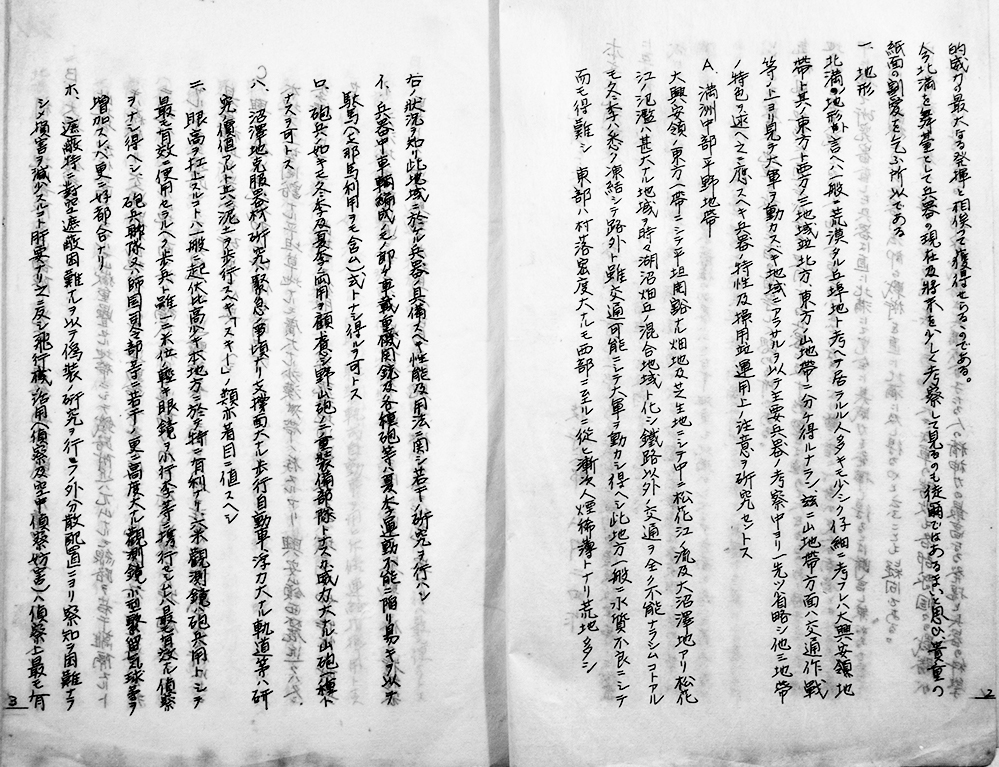 的威力の最大なる発揮と相俟って獲得せらるゝのである。
今北満を舞台として兵器の現在及将来を少しく考察して見るのも徒爾ではあるまいと思ひ貴重の
紙面の割愛を乞ふ所以である
一、地形
北満ノ地形ト言ヘハ一般ニ荒漠タル丘埠地ト考ヘテ居ラルル人多キモ少シク仔細ニ考フレハ大興安嶺地
帯ト其ノ東方ト西方ノ三地域並北方、東方ノ山地帯ニ分チ得ルナラン、茲ニ山地帯方面ハ交通作戦
等ノ上ヨリ見テ大軍ヲ動カスヘキ地域ニアラサルヲ以テ主要兵器ノ考察中ヨリ一先ツ省略シ他ノ三地帯
ノ特色ヲ述ヘ之ニ應スヘキ兵器ノ特性及採用並運用上ノ注意ヲ研究セントス
A、満洲中部平野地帯
大興安嶺ノ東方一帯ニシテ平坦開豁ナル畑地及芝生地ニシテ中ニ松花江ノ流及大沼澤地アリ松花
江ノ氾濫ハ甚大ナル地域ヲ時々湖沼畑丘ノ混合地域ト化シ鐵路以外ノ交通ヲ全ク不能ナラシムコトアル
モ冬季ハ悉ク凍結シテ路外ト雖交通可能ニシテ大軍ヲ動カシ得ヘシ此地方一般ニ水質不良ニシテ
而モ得難シ　東部ハ村落密度大ナルモ西部ニ至ルニ従ヒ漸次人煙稀薄トナリ荒地多シ
2
右ノ状況ヲ知リ此地域ニ於ケル兵器ノ具備スヘキ性能及用法ニ関シ若干ノ研究ヲ行ハン
イ、兵器中車輌編成ノモノ即チ車載重機関銃及各種砲等ハ夏季運動不能ニ陥リ易キヲ以テ
駄馬(之耶馬利用ヲモ含ム)式トナシ得ルヲ可トス
ロ、砲兵ノ如キモ冬季及夏季ノ両用ヲ顧慮シ野、山砲ノ二重装備部隊トナスカ威力大ナル山砲一種ト
ナスヲ可トス
ハ、湿澤地克服器材ノ研究ハ緊急ノ事項ナリ支撐面大ナル歩行自動車浮力大ナル軌道等ハ研
究ノ價値アルト共ニ泥土ヲ歩行スヘキ「スキー」ノ類亦着目ニ値スヘシ
ニ、眼高ヲ扛上スルコトハ一般ニ起伏比高少キ本地方ニ於テ特ニ有利ナリ六米観測鏡ハ砲兵用トシテ
最モ有效ニ使用セラルヘク歩兵ト雖一二米位ノ軽キ眼鏡ヲ小行李等ニ携行セシムルハ最モ有效ナル偵察
ヲナシ得ヘシ、砲兵聯隊又ハ師団司令部等ニ若干ノ更ニ高度大ナル観測鏡、小型繋留気球等ヲ
増加スレハ更ニ好都合ナリ
ホ、遮蔽特ニ對空遮蔽困難ナルヲ以テ偽装ノ研究ヲ行フノ外分散配置ニヨリ察知ヲ困難ナラ
シメ損害ヲ減少スルコト肝要ナリ之ニ反シ飛行機ノ活用(偵察及空中偵察妨害)ハ偵察上最モ有
3